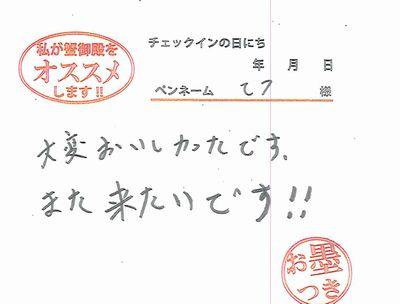 私が蟹御殿を
オススメ
します!!
チェックインの日にち
年 月 日
ペンネーム てフ 様
大変おいしかったです.
また来たいです!!
お墨
つき